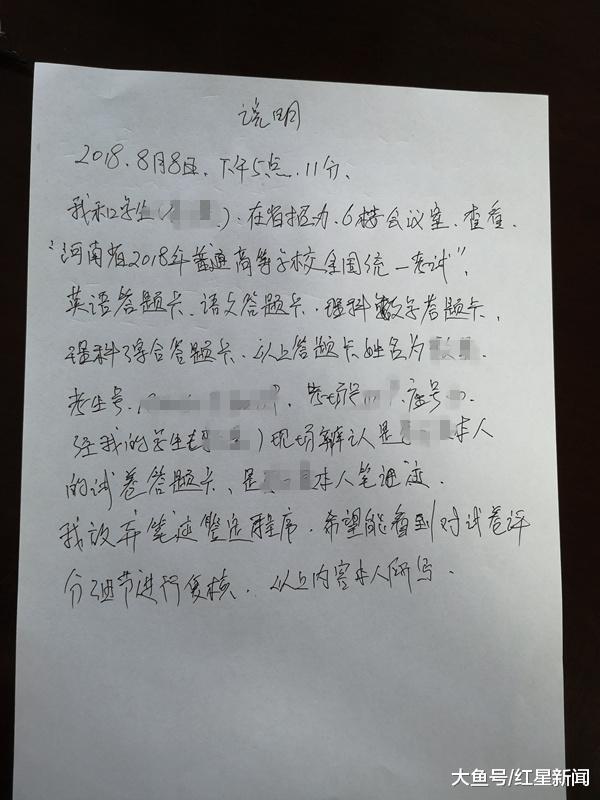 说明
2018.8月8日.下午5点.11分.
我和学生( ).在省招办.6楼会议室.查看.
"河南省2018年普通高等学校全国统一考试".
英语答题卡、语文答题卡.理科数学答题卡、
理科综合答题卡.以上答题卡姓名为
考生号. .考场号 .座号
经我的学生( )现场辨认是 本人
的试卷答题卡、是 本人笔迹.
我放弃笔迹鉴定程序.希望能看到对试卷评
分细节进行复核.以上内容本人所写.
大鱼号/红星新闻